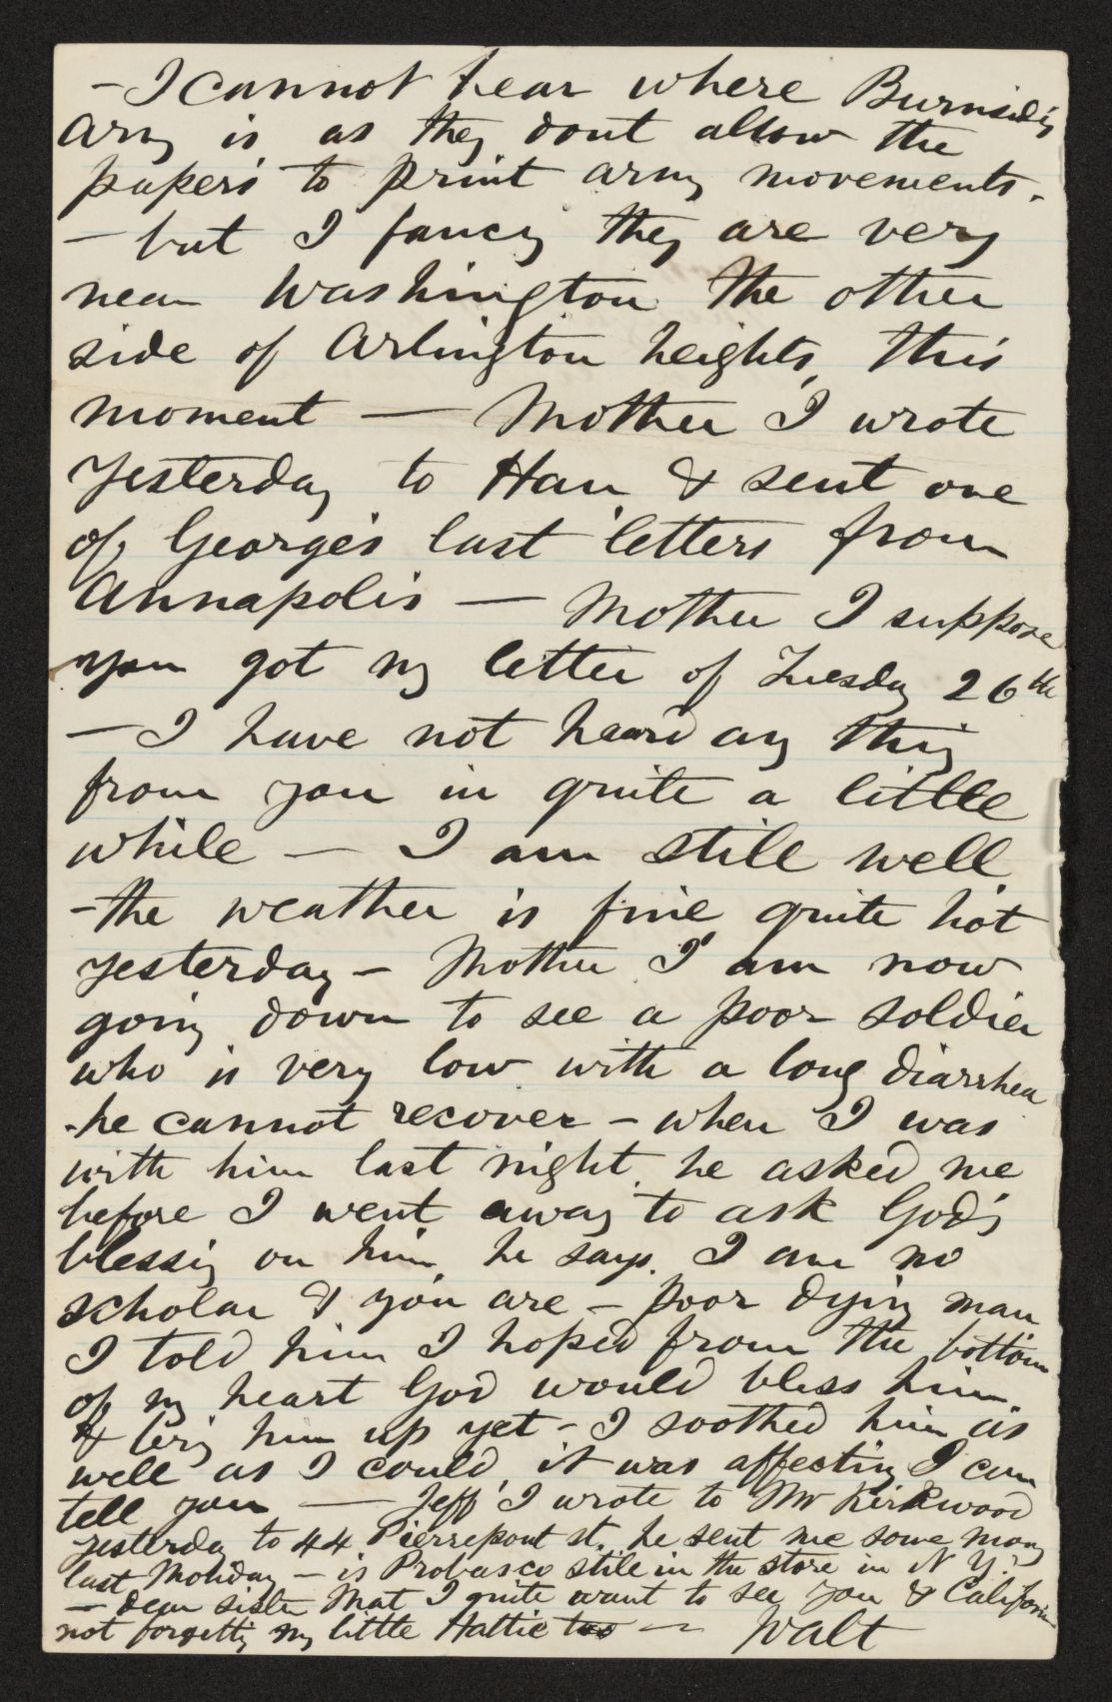 – I cannot hear where Burnside's
army is as they dont allow the
papers to print army movements.
– but I fancy they are very
near Washington the other
side of Arlington heights, this
moment — Mother I wrote
yesterday to Han & sent one
of George's last letters from
Annapolis — Mother I suppose
you got my letter of Tuesday 26th
– I have not heard any thing
from you in quite a little
while — I am still well
– the weather is fine quite hot
yesterday – Mother I am now
going down to see a poor soldier
who is very low with a long diarrhea
- he cannot recover – when I was
with him last night, he asked me
before I went away to ask God's
blessing on him, he says, I am no
scholar & you are – poor dying man
I told him I hoped from the bottom
of my heart God would bless him
& bring him up yet – I soothed him as
well as I could, it was affecting I can
tell you — Jeff I wrote to Mr Kirkwood
yesterday to 44 Pierrepont st. he sent me some money
last Monday – is Probasco still in the store in N Y?
– dear sister Mat I quite want to see you & California
not forgetting my little Hattie too — Walt